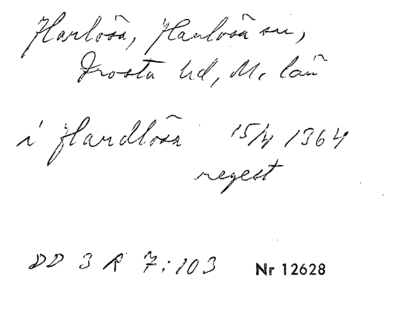 Harlösa, Harlösa sn,
Frosta hd, M. län
i Hardlösa 15/4 1364
regest
DD 3 R 7:103 Nr 12628